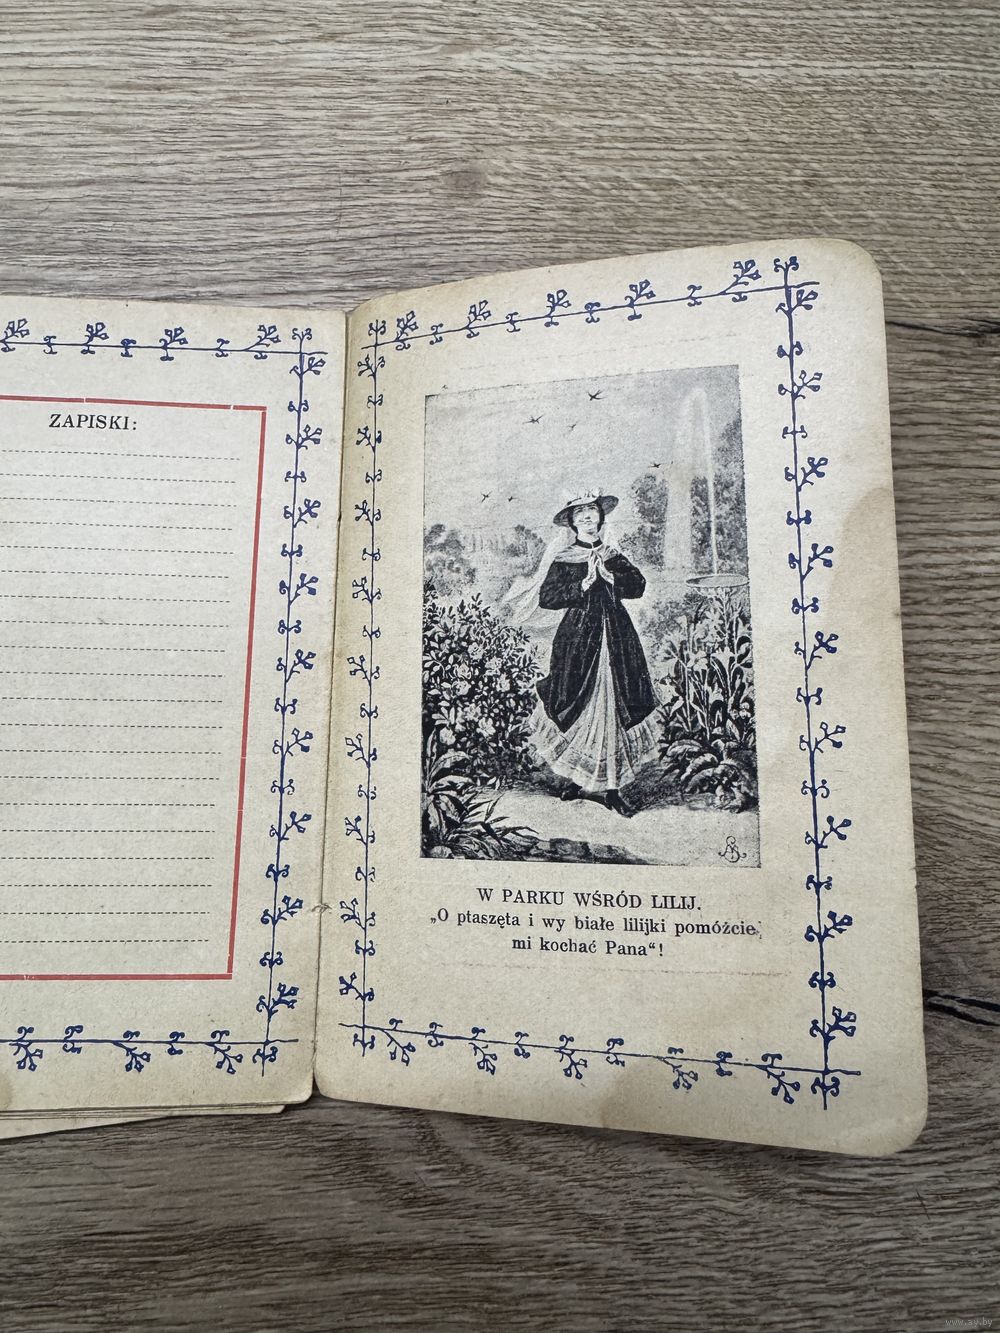 ZAPISKI:
W PARKU WŚRÓD LILIJ.
„O ptaszęta i wy białe lilijki pomóżcie
mi kochać Pana“!
www.ay.by